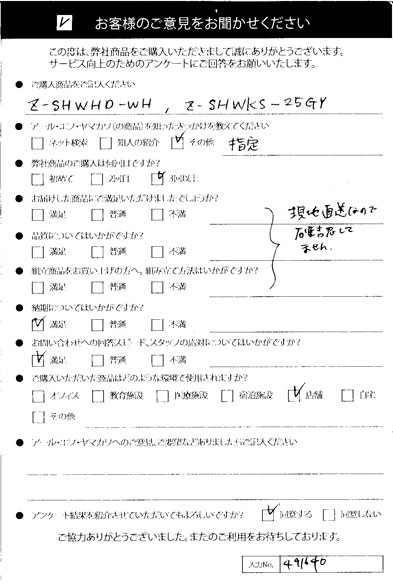 お客様のご意見をお聞かせください
この度は、弊社商品をご購入いただきまして誠にありがとうございます。
サービス向上のためのアンケートにご回答をお願いいたします。
● ご購入商品をご記入ください
Z-SHWHD-WH , Z-SHWKS-25GY
● アール・エフ・ヤマカワ(の商品)を知ったきっかけを教えてください
ネット検索 知人の紹介 その他 指定
● 弊社商品のご購入は何回目ですか?
初めて 2回目 3回以上
● お届けした商品にご満足いただけましたでしょうか?
満足 普通 不満
● 品質についてはいかがですか?
満足 普通 不満
● 組立商品をお買い上げの方へ。組み立て方法はいかがですか?
満足 普通 不満
現地直送なので
確認して
ません。
● 納期についてはいかがですか?
満足 普通 不満
● お問い合わせへの回答スピード、スタッフの応対についてはいかがですか?
満足 普通 不満
● ご購入いただいた商品はどのような環境で使用されますか?
オフィス 教育施設 医療施設 宿泊施設 店舗 自宅
その他
● アール・エフ・ヤマカワへのご意見、ご要望などありましたらご記入ください
● アンケート結果を紹介させていただいてもよろしいですか? 同意する 同意しない
ご協力ありがとうございました。またのご利用をお待ちしております。
入力No. 491640